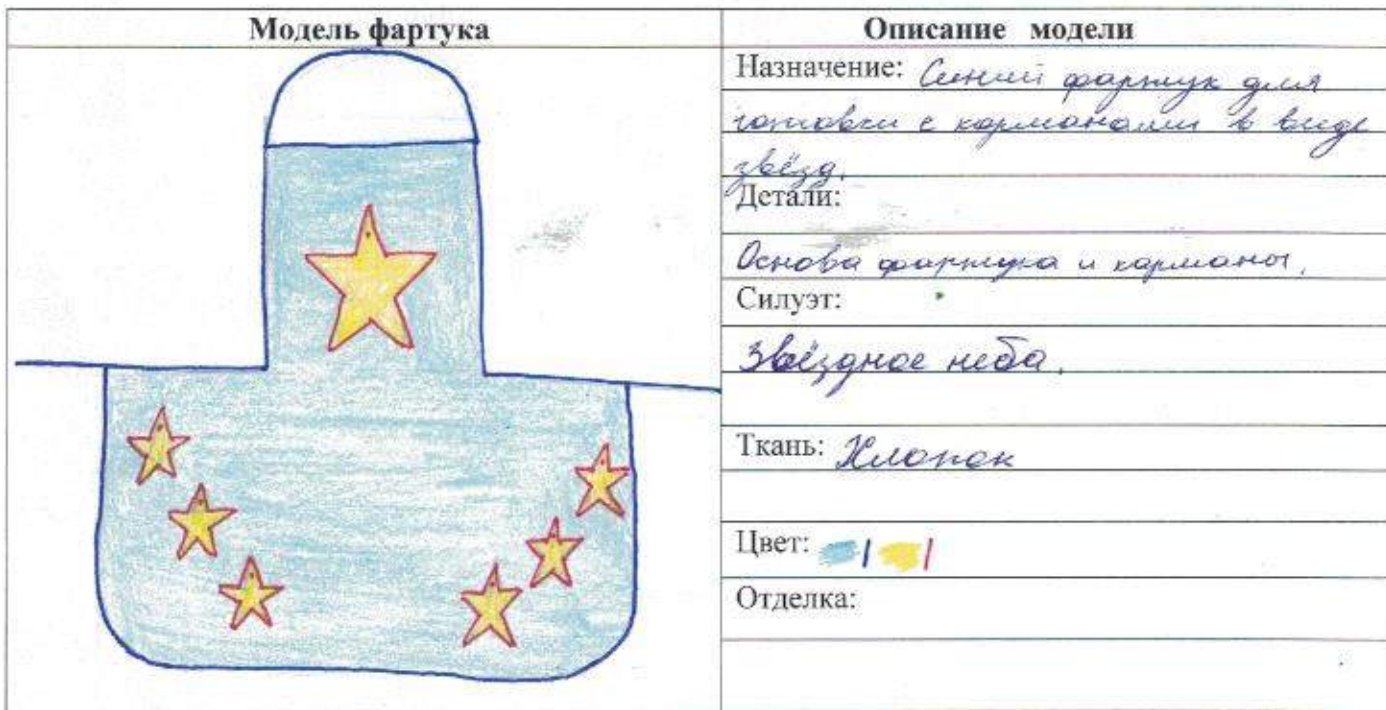 Модель фартука
Описание модели
Назначение: Синий фартук для
готовки с карманами в виде
звёзд.
Детали:
Основа фартука и карманы.
Силуэт:
Звёздное неба.
Ткань: Хлопок
Цвет:
Отделка: